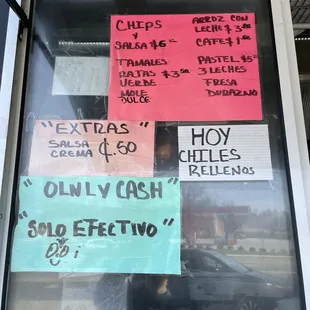 CHIPS
Y
SALSA $6
TAMALES
RAJAS $3.50
VERDE
MOLE
DULCE
ARROZ CON
LECHE $3.
CAFE $1.
PASTEL $5
3 LECHES
FRESA
DURAZNO
"EXTRAS"
SALSA
CREMA ¢.50
HOY
CHILES
RELLENOS
"OLNLY CASH"
"SOLO EFECTIVO"